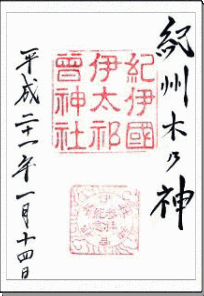 紀州木乃神
紀伊國
伊太祁
曾神社
平成二十一年一月十四日